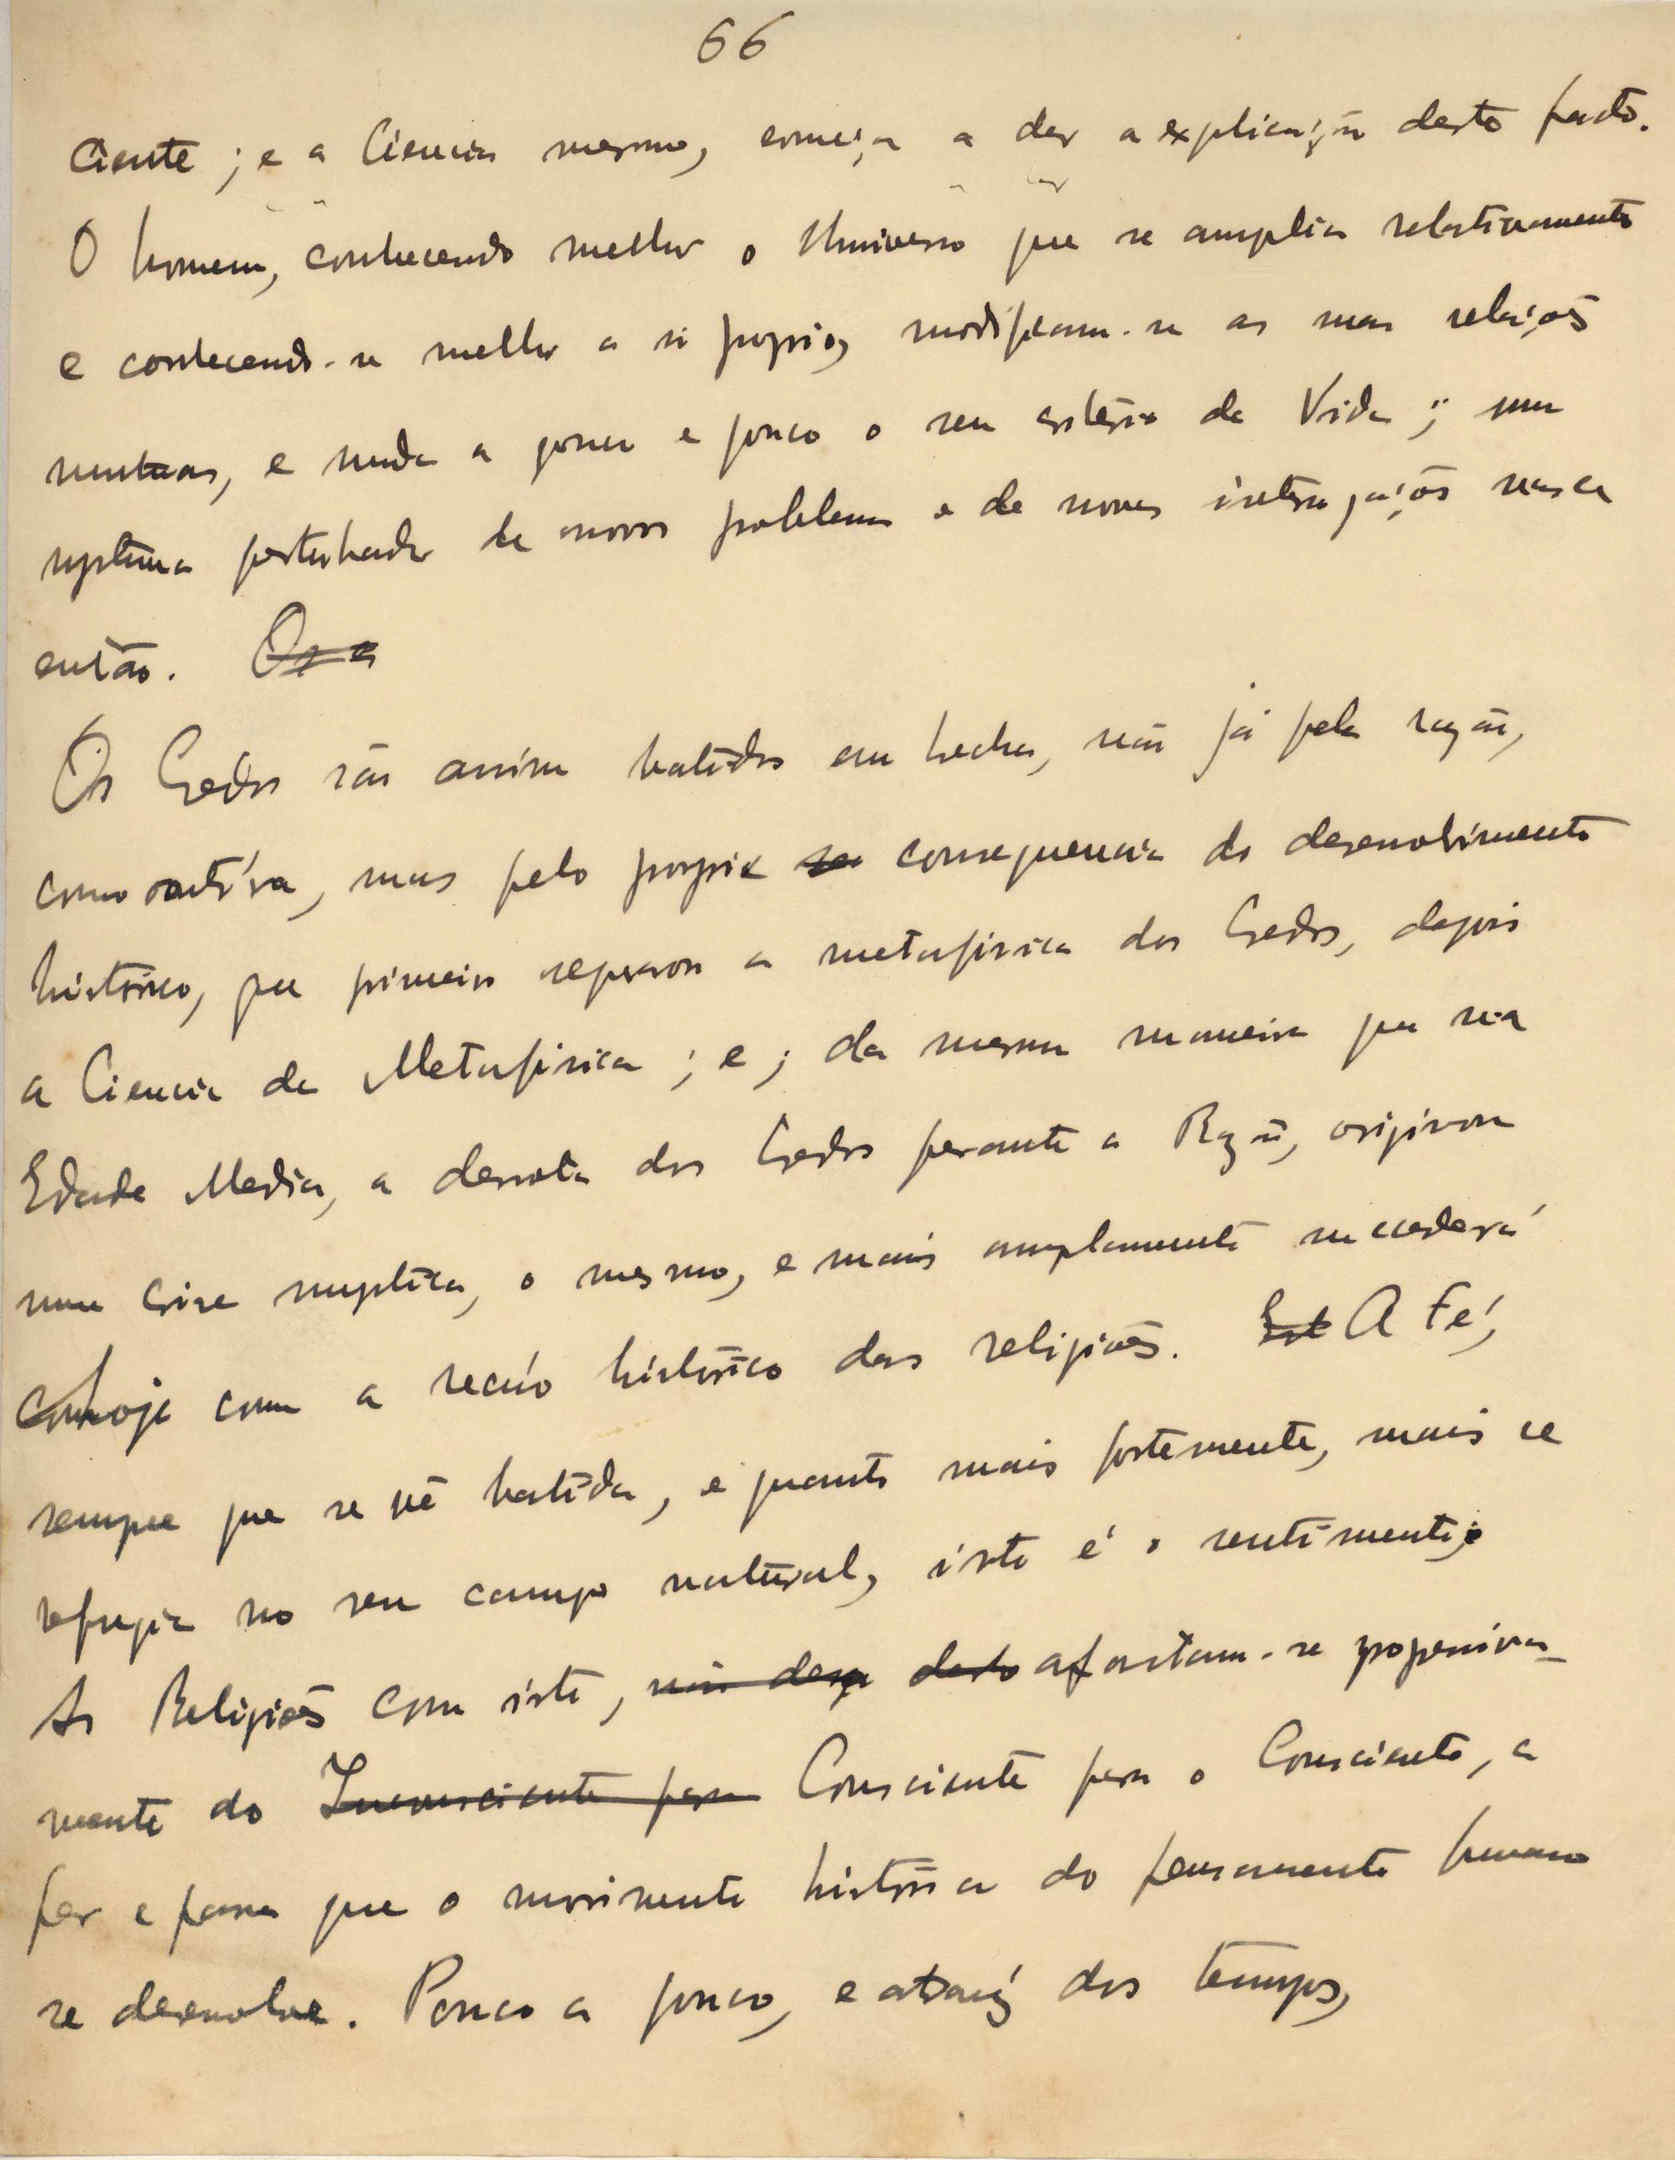 66
ciente; e a Ciencia mesmo, começa a dar a explicação deste facto.
O homem, conhecendo melhor o Universo que se amplia relativamente
e conhecendo-se melhor a si proprio, modificam-se as suas relações
mutuas, e muda a pouco e pouco o seu critério da Vida; um
systema perturbador de novos problemas e de novas interrogações nasce
então. Ora
Os Credos são assim batidos em brecha, não já pela razão,
como outróra, mas pela propria consequencia do desenvolvimento
histórico, que primeiro separou a metafisica dos Credos, depois
a Ciencia da Metafisica; e, da mesma maneira que na
Edade Media, a derrota dos Credos perante a Razão, originou
uma crise mystica, o mesmo, e mais amplamente succederá
hoje com a recúo histórico das religiões. Est A Fé,
sempre que se vê batida, e quanto mais fortemente, mais se
refugia no seu campo natural, isto é o sentimento,
As Religiões com isto, não desa desto afastam-se progressiva-
mente do Inconsciente para Consciente para o Consciente, a
par e passo que o movimento histórico do pensamento humano
se desenvolve. Pouco a pouco, e atravéz dos tempos,